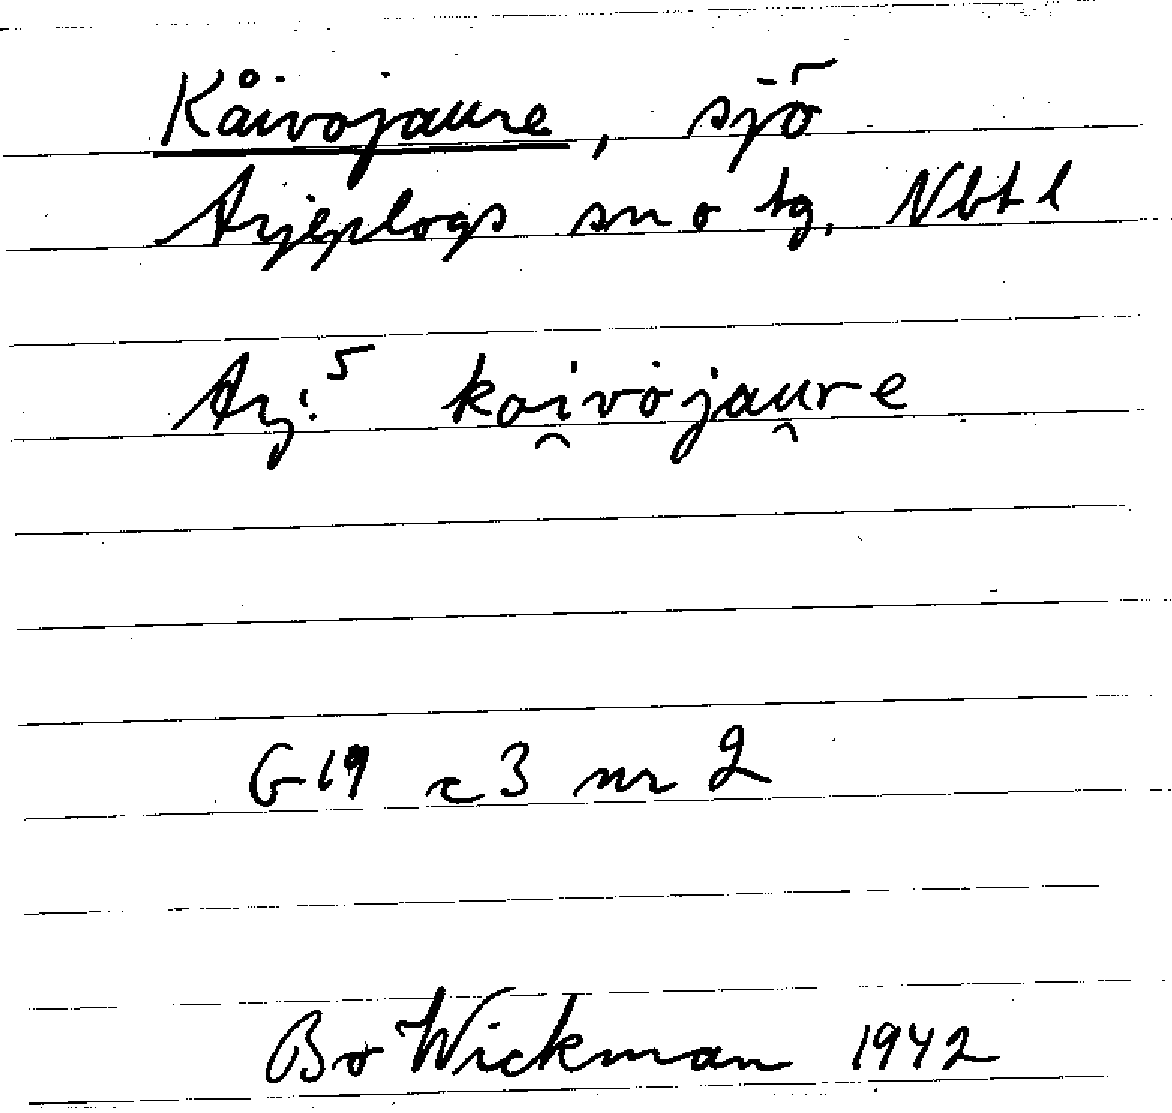 Kåivojaure, sjö
Arjeplogs sn o tg. Nbt l
Arj: 5 ko̯ivȯjau̯re
G 19 c 3 nr 2
Bo Wickman 1942